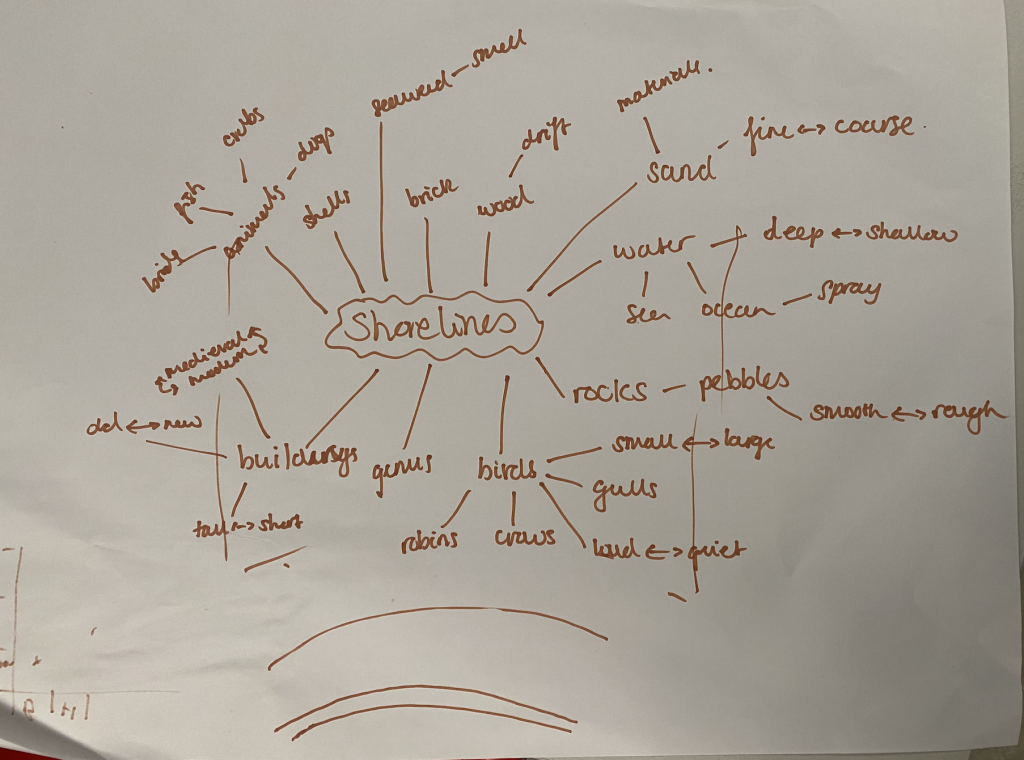 seaweed — smell
materials.
crabs
dogs
drift
fine ↔ coarse.
fish
animals
shells
brick
wood
sand
birds
water — deep ↔ shallow
sea
ocean — spray
Shorelines
medieval
modern
rocks — pebbles
smooth ↔ rough
old ↔ new
buildings
genus
birds
small ↔ large
gulls
tall ↔ short
robins
crows
loud ↔ quiet